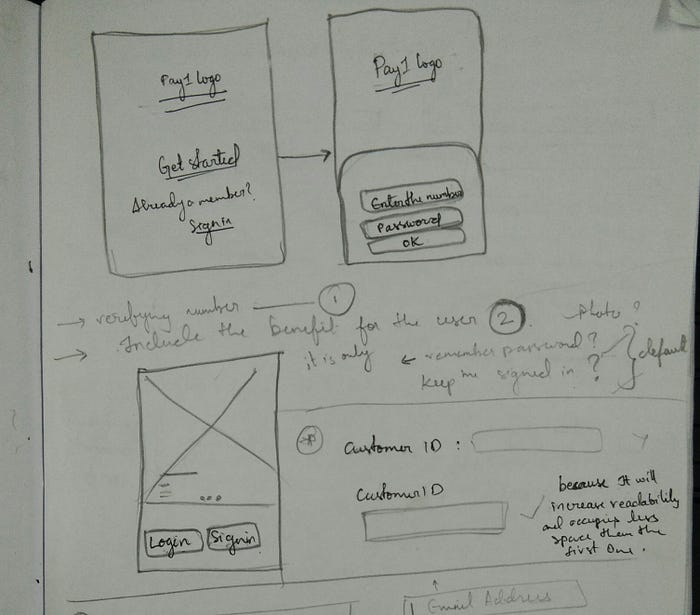 Pay1 logo
Get started
Already a member?
Signin
Pay1 logo
Enter the number
Password
OK
→ verifying number — 1
→ Include the benefit for the user 2
photo?
it is only ← remember password?
keep me signed in?
default
Login
Signin
Customer ID :
Customer ID
because It will
increase readability
and occupies less
space then the
first one.
Email Address